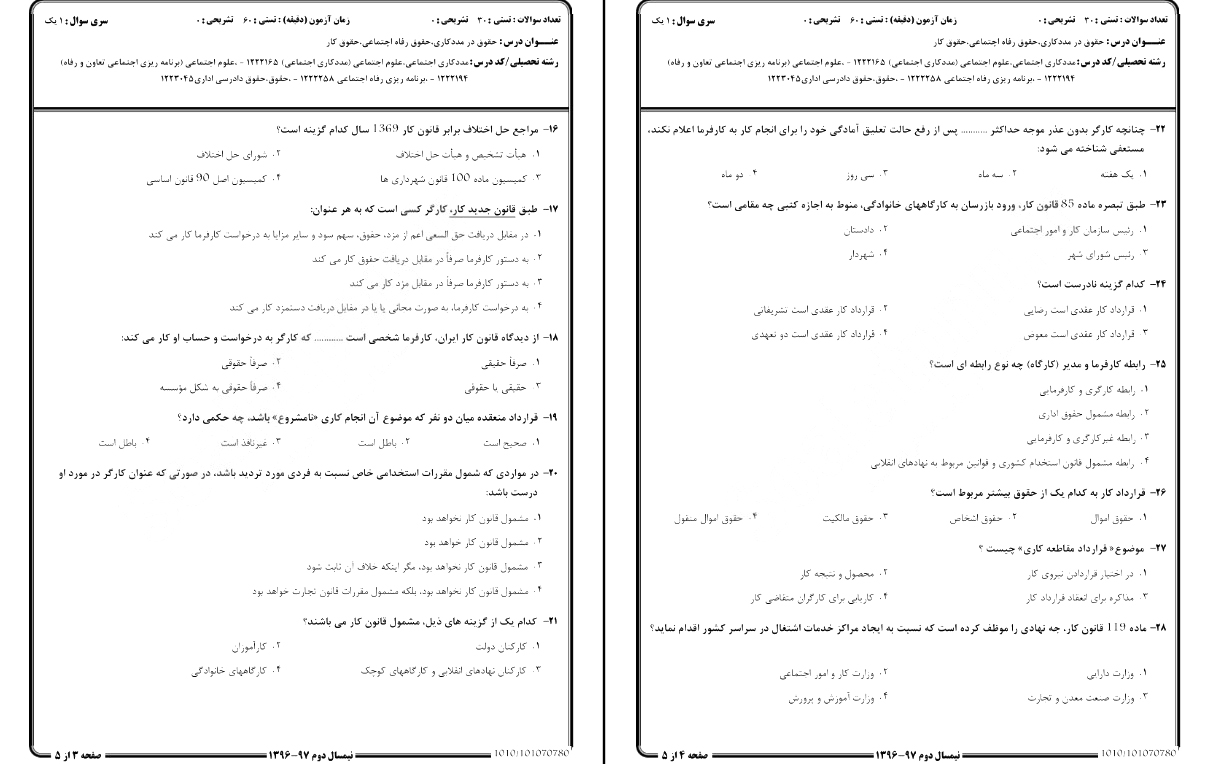 تعداد سوالات : تستی : ۳۰ تشریحی : ۰ زمان آزمون (دقیقه) : تستی : ۶۰ تشریحی : ۰ سری سوال : ۱ یک
عنـــوان درس : حقوق در مددکاری،حقوق رفاه اجتماعی،حقوق کار
رشته تحصیلی/کد درس : مددکاری اجتماعی،علوم اجتماعی (مددکاری اجتماعی) ۱۲۲۲۱۶۵ - ،علوم اجتماعی (برنامه ریزی اجتماعی تعاون و رفاه)
۱۲۲۲۱۹۴ - ،برنامه ریزی رفاه اجتماعی ۱۲۲۲۲۵۸ - ،حقوق،حقوق دادرسی اداری۱۲۲۳۰۴۵
۱۶- مراجع حل اختلاف برابر قانون کار 1369 سال کدام گزینه است؟
۱. هیأت تشخیص و هیأت حل اختلاف ۲. شورای حل اختلاف
۳. کمیسیون ماده 100 قانون شهرداری ها ۴. کمیسیون اصل 90 قانون اساسی
۱۷- طبق قانون جدید کار، کارگر کسی است که به هر عنوان:
۱. در مقابل دریافت حق السعی اعم از مزد، حقوق، سهم سود و سایر مزایا به درخواست کارفرما کار می کند
۲. به دستور کارفرما صرفاً در مقابل دریافت حقوق کار می کند
۳. به دستور کارفرما صرفاً در مقابل مزد کار می کند
۴. به درخواست کارفرما، به صورت مجانی یا یا در مقابل دریافت دستمزد کار می کند
۱۸- از دیدگاه قانون کار ایران، کارفرما شخصی است ............ که کارگر به درخواست و حساب او کار می کند:
۱. صرفاً حقیقی ۲. صرفاً حقوقی
۳. حقیقی یا حقوقی ۴. صرفاً حقوقی به شکل مؤسسه
۱۹- قرارداد منعقده میان دو نفر که موضوع آن انجام کاری «نامشروع» باشد، چه حکمی دارد؟
۱. صحیح است ۲. باطل است ۳. غیرنافذ است ۴. باطل است
۲۰- در مواردی که شمول مقررات استخدامی خاص نسبت به فردی مورد تردید باشد، در صورتی که عنوان کارگر در مورد او
درست باشد:
۱. مشمول قانون کار نخواهد بود
۲. مشمول قانون کار خواهد بود
۳. مشمول قانون کار نخواهد بود، مگر اینکه خلاف آن ثابت شود
۴. مشمول قانون کار نخواهد بود، بلکه مشمول مقررات قانون تجارت خواهد بود
۲۱- کدام یک از گزینه های ذیل، مشمول قانون کار می باشند؟
۱. کارکنان دولت ۲. کارآموزان
۳. کارکنان نهادهای انقلابی و کارگاههای کوچک ۴. کارگاههای خانوادگی
1010/101070780 نیمسال دوم ۹۷-۱۳۹۶ صفحه ۳ از ۵
تعداد سوالات : تستی : ۳۰ تشریحی : ۰ زمان آزمون (دقیقه) : تستی : ۶۰ تشریحی : ۰ سری سوال : ۱ یک
عنـــوان درس : حقوق در مددکاری،حقوق رفاه اجتماعی،حقوق کار
رشته تحصیلی/کد درس : مددکاری اجتماعی،علوم اجتماعی (مددکاری اجتماعی) ۱۲۲۲۱۶۵ - ،علوم اجتماعی (برنامه ریزی اجتماعی تعاون و رفاه)
۱۲۲۲۱۹۴ - ،برنامه ریزی رفاه اجتماعی ۱۲۲۲۲۵۸ - ،حقوق،حقوق دادرسی اداری۱۲۲۳۰۴۵
۲۲- چنانچه کارگر بدون عذر موجه حداکثر .......... پس از رفع حالت تعلیق آمادگی خود را برای انجام کار به کارفرما اعلام نکند،
مستعفی شناخته می شود:
۱. یک هفته ۲. سه ماه ۳. سی روز ۴. دو ماه
۲۳- طبق تبصره ماده 85 قانون کار، ورود بازرسان به کارگاههای خانوادگی، منوط به اجازه کتبی چه مقامی است؟
۱. رئیس سازمان کار و امور اجتماعی ۲. دادستان
۳. رئیس شورای شهر ۴. شهردار
۲۴- کدام گزینه نادرست است؟
۱. قرارداد کار عقدی است رضایی ۲. قرارداد کار عقدی است تشریفاتی
۳. قرارداد کار عقدی است معوض ۴. قرارداد کار عقدی است دو تعهدی
۲۵- رابطه کارفرما و مدیر (کارگاه) چه نوع رابطه ای است؟
۱. رابطه کارگری و کارفرمایی
۲. رابطه مشمول حقوق اداری
۳. رابطه غیرکارگری و کارفرمایی
۴. رابطه مشمول قانون استخدام کشوری و قوانین مربوط به نهادهای انقلابی
۲۶- قرارداد کار به کدام یک از حقوق بیشتر مربوط است؟
۱. حقوق اموال ۲. حقوق اشخاص ۳. حقوق مالکیت ۴. حقوق اموال منقول
۲۷- موضوع« قرارداد مقاطعه کاری» چیست ؟
۱. در اختیار قراردادن نیروی کار ۲. محصول و نتیجه کار
۳. مذاکره برای انعقاد قرارداد کار ۴. کاریابی برای کارگران متقاضی کار
۲۸- ماده 119 قانون کار، چه نهادی را موظف کرده است که نسبت به ایجاد مراکز خدمات اشتغال در سراسر کشور اقدام نماید؟
۱. وزارت دارایی ۲. وزارت کار و امور اجتماعی
۳. وزارت صنعت معدن و تجارت ۴. وزارت آموزش و پرورش
1010/101070780 نیمسال دوم ۹۷-۱۳۹۶ صفحه ۴ از ۵